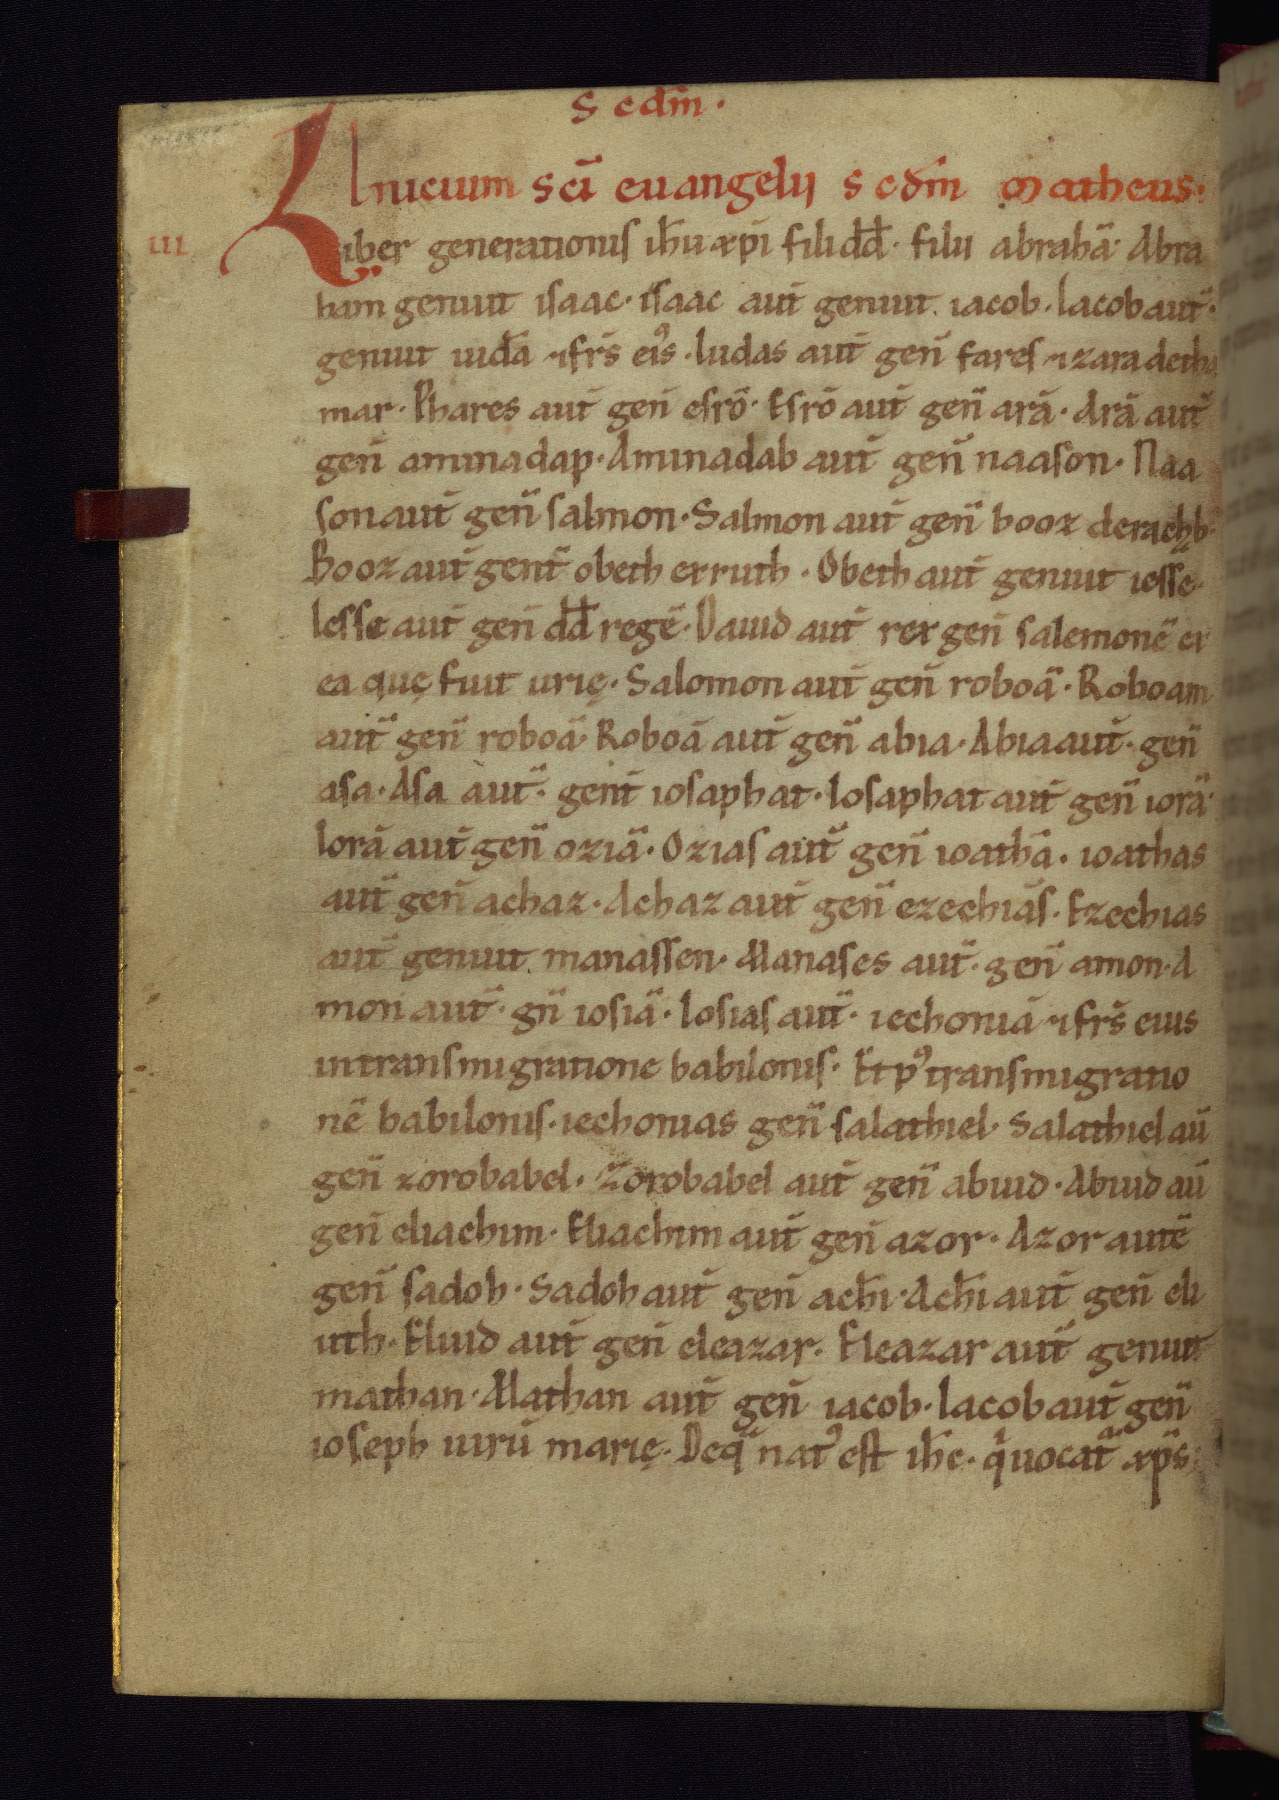 s cdm̄ ·
Inicium sci̅ euangelij s cdm̄ matheus ·
III Liber generationis ih̄u xp̄i filii dd̄ · filii abrahā · Abra
ham genuit isaac · isaac aut̄ genuit iacob · Iacob aut̄ ·
genuit iudā ⁊ frs̄ eiꝰs · Iudas aut̄ gen̄ fares ⁊ zara de tha
mar · Phares aut̄ gen̄ esrō · Esrō aut̄ gen̄ arā · Arā aut̄
gen̄ aminadap · Aminadab aut̄ gen̄ naason · Naa
son aut̄ gen̄ salmon · Salmon aut̄ gen̄ booz de rachb ·
Booz aut̄ gent̄ obeth et ruth · Obeth aut̄ genuit iesse ·
Iesse aut̄ gen̄ dd̄ regē · Dauid aut̄ rex gen̄ salemonē ex
ea quę fuit urię · Salomon aut̄ gen̄ roboā · Roboam
aut̄ gen̄ roboā · Roboā aut̄ gen̄ abia · Abia aut̄ · gen̄
asa · Asa aut̄ · gent̄ iosaphat · Iosaphat aut̄ gen̄ iorā ·
Iorā aut̄ gen̄ oziā · Ozias aut̄ gen̄ ioathā · ioathas
aut̄ gen̄ achaz · Achaz aut̄ gen̄ ezechiās · Ezechias
aut̄ genuit manassen · Manases aut̄ · gen̄ amon · A
mon aut̄ · gn̄ iosiā · Iosias aut̄ · iechoniā ⁊ frs̄ eius
in transmigratione babilonis · Et pꝰ transmigratio
nē babilonis · iechonias gen̄ salathiel · Salathiel aū
gen̄ zorobabel · Zorobabel aut̄ gen̄ abiud · Abiud aū
gen̄ eliachim · Eliachim aut̄ gen̄ azor · Azor autē
gen̄ sadoh · Sadoh aut̄ gen̄ achī · Achī aut̄ gen̄ eli
uth · Eliud aut̄ gen̄ eleazar · Eleazar aut̄ genuit
mathan · Mathan aut̄ gen̄ iacob · Iacob aut̄ gen̄
ioseph uirū marię · De qͣ natꝰ est ih̄c · qͥ uocat̄ xp̄s ·